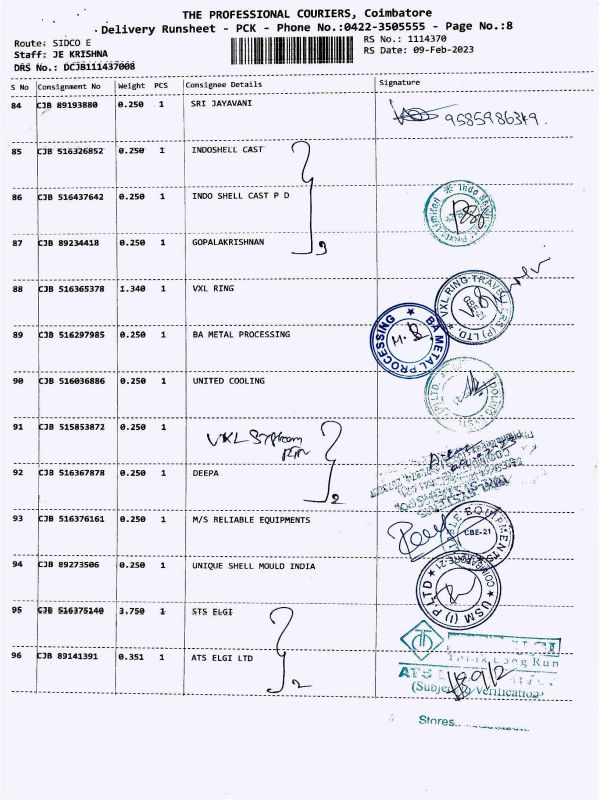 THE PROFESSIONAL COURIERS, Coimbatore
Delivery Runsheet - PCK - Phone No.:0422-3505555 - Page No.:8
Route: SIDCO E
RS No.: 1114370
Staff: JE KRISHNA
RS Date: 09-Feb-2023
DRS No.: DCJB111437008
S No Consignment No Weight PCS Consignee Details Signature
84 CJB 89193880 0.250 1 SRI JAYAVANI
85 CJB 516326852 0.250 1 INDOSHELL CAST
86 CJB 516437642 0.250 1 INDO SHELL CAST P D
87 CJB 89234418 0.250 1 GOPALAKRISHNAN
88 CJB 516365378 1.340 1 VXL RING
VXL RING TRAVELLERS (P) LTD.
89 CJB 516297985 0.250 1 BA METAL PROCESSING
BA METAL PROCESSING
90 CJB 516036886 0.250 1 UNITED COOLING
91 CJB 515853872 0.250 1
92 CJB 516367878 0.250 1 DEEPA
2
93 CJB 516376161 0.250 1 M/S RELIABLE EQUIPMENTS
CBE-21
94 CJB 89273506 0.250 1 UNIQUE SHELL MOULD INDIA
USM (I) P.LTD COIMBATORE-21
95 CJB 516375140 3.750 1 STS ELGI
96 CJB 89141391 0.351 1 ATS ELGI LTD
2
Think Long Run
ATS
(Subject to Verification)
Stores